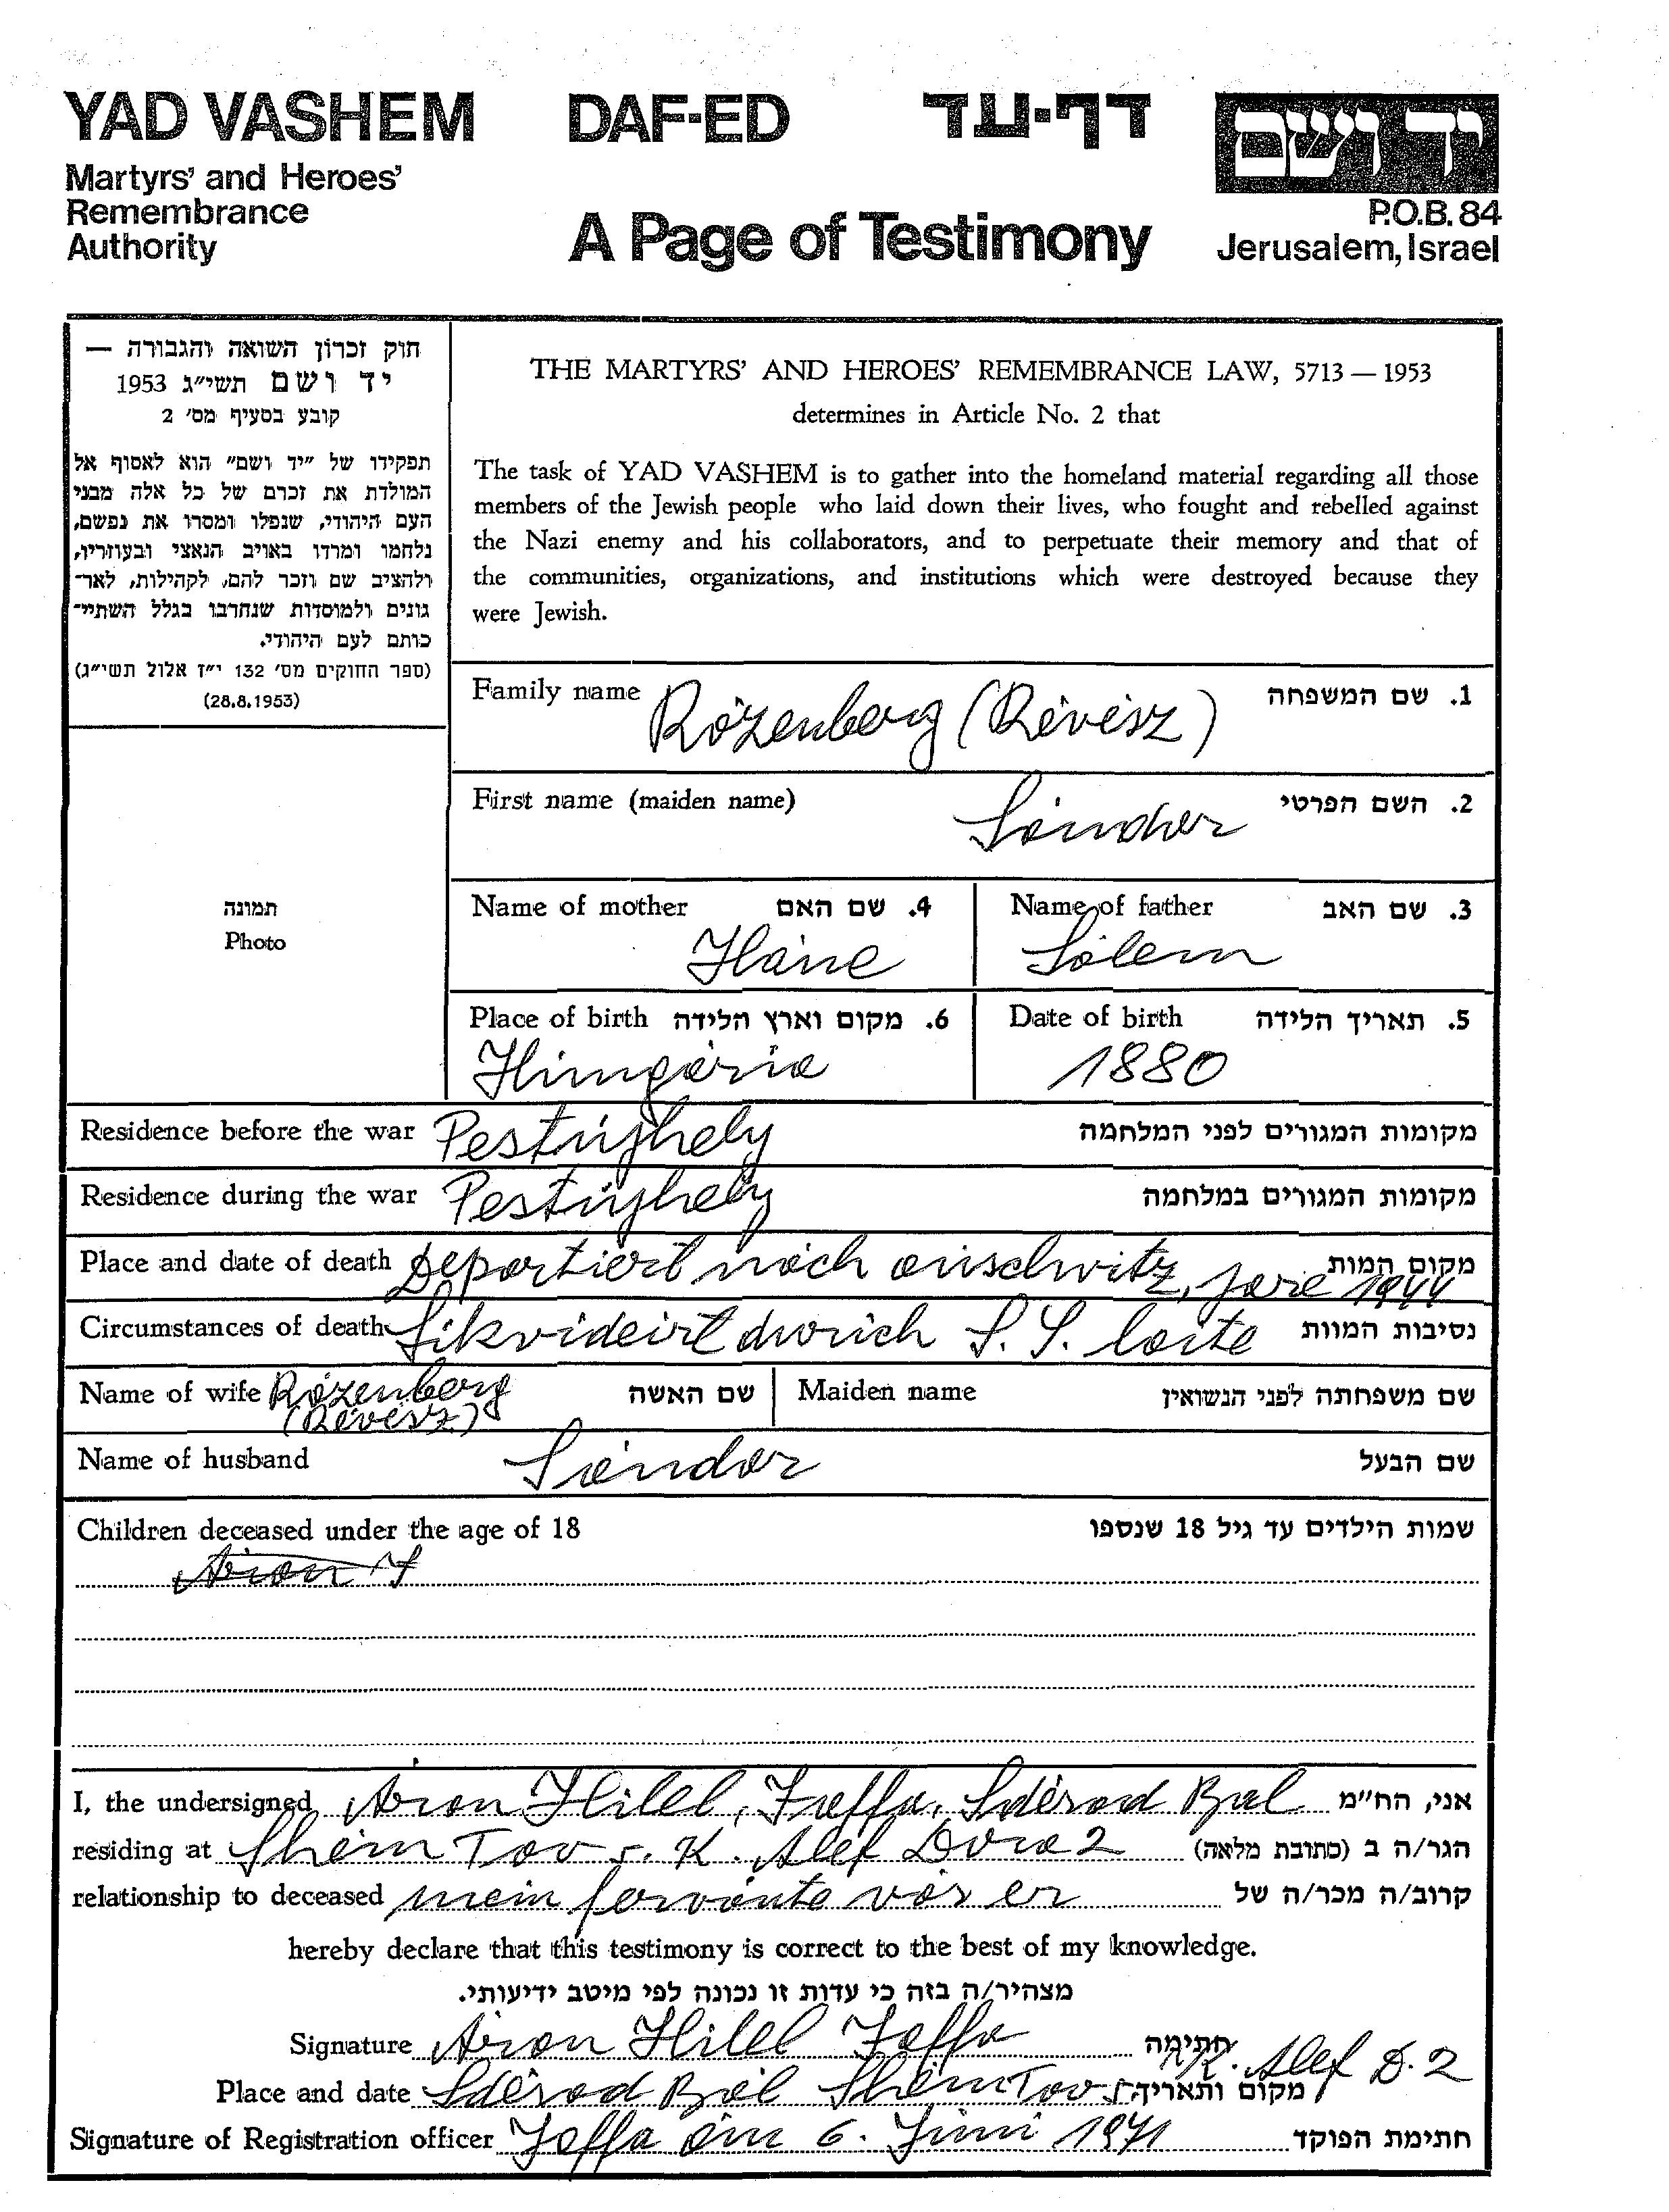 YAD VASHEM DAF-ED דף-עד יד ושם
Martyrs' and Heroes'
Remembrance
Authority
A Page of Testimony
P.O.B. 84
Jerusalem, Israel
חוק זכרון השואה והגבורה —
יד ושם תשי״ג 1953
קובע בסעיף מס׳ 2
תפקידו של ״יד ושם״ הוא לאסוף אל
המולדת את זכרם של כל אלה מבני
העם היהודי, שנפלו ומסרו את נפשם,
נלחמו ומרדו באויב הנאצי ובעוזריו,
ולהציב שם וזכר להם, לקהילות, לאר־
גונים ולמוסדות שנחרבו בגלל השתיי־
כותם לעם היהודי.
(ספר החוקים מס׳ 132 י״ז אלול תשי״ג)
(28.8.1953)
THE MARTYRS' AND HEROES' REMEMBRANCE LAW, 5713 — 1953
determines in Article No. 2 that
The task of YAD VASHEM is to gather into the homeland material regarding all those
members of the Jewish people who laid down their lives, who fought and rebelled against
the Nazi enemy and his collaborators, and to perpetuate their memory and that of
the communities, organizations, and institutions which were destroyed because they
were Jewish.
תמונה
Photo
Family name Rózenberg (Révész) 1. שם המשפחה
First name (maiden name) Sándor 2. השם הפרטי
Name of mother 4. שם האם
Háne
Name of father 3. שם האב
Sólem
Place of birth 6. מקום וארץ הלידה
Hungária
Date of birth 5. תאריך הלידה
1880
Residence before the war Pestújhely מקומות המגורים לפני המלחמה
Residence during the war Pestújhely מקומות המגורים במלחמה
Place and date of death Deportiert nach auschwitz, jare 1944 מקום המות
Circumstances of death Likvideirt durich S. S. loite נסיבות המוות
Name of wife Rózenberg (Révész) שם האשה Maiden name שם משפחתה לפני הנשואין
Name of husband Sándor שם הבעל
Children deceased under the age of 18 שמות הילדים עד גיל 18 שנספו
I, the undersigned Áron Hilel, Jaffa, Sdérod Bal אני, הח״מ
residing at Shém Tov r. K. Alef Dira 2 הגר/ה ב (כתובת מלאה)
relationship to deceased mein forvánte vár er קרוב/ה מכר/ה של
hereby declare that this testimony is correct to the best of my knowledge.
מצהיר/ה בזה כי עדות זו נכונה לפי מיטב ידיעותי.
Signature Áron Hilel Jaffa חתימה K. Alef D. 2
Place and date Sdérod Bál Shém Tov מקום ותאריך
Signature of Registration officer Jaffa ám 6. Juni 1971 חתימת הפוקד